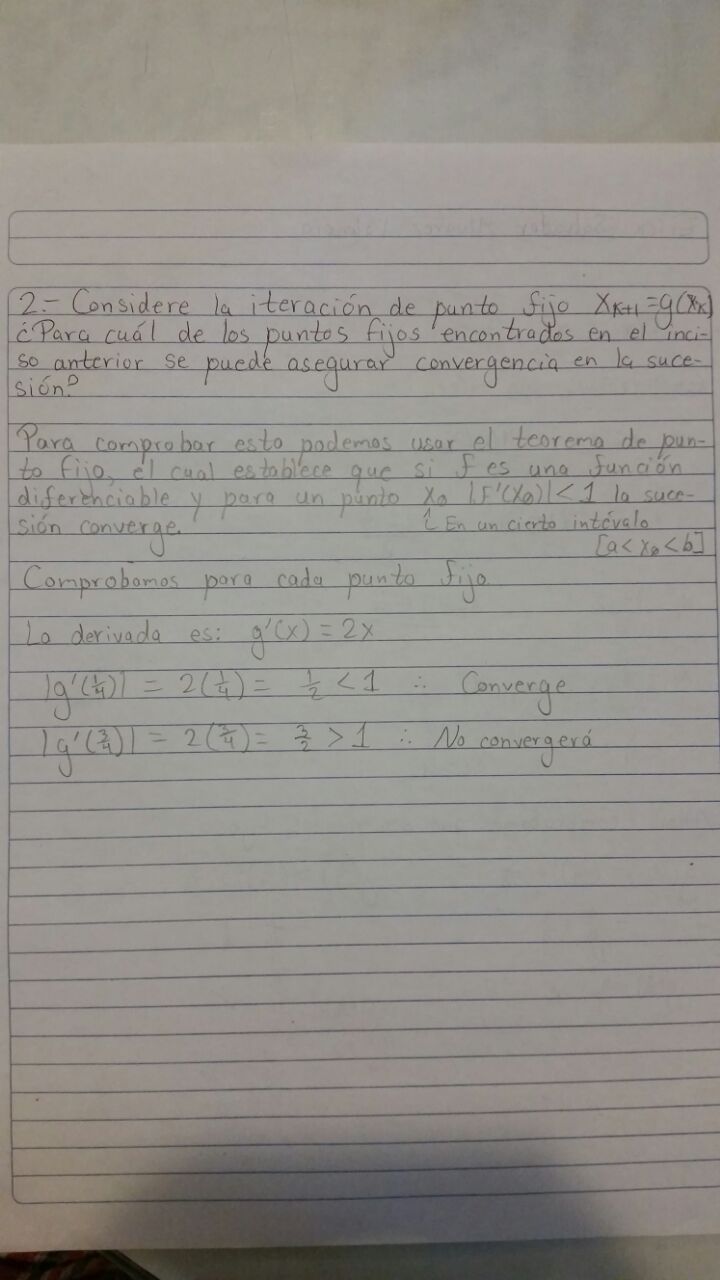 2.- Considere la iteración de punto fijo Xₖ₊₁=g(Xₖ)
¿Para cuál de los puntos fijos encontrados en el inci-
so anterior se puede asegurar convergencia en la suce-
sión?
Para comprobar esto podemos usar el teorema de pun-
to fijo, el cual establece que si f es una función
diferenciable y para un punto X₀ |F'(X₀)|<1 la suce-
sión converge.
En un cierto intévalo
[a<x₀<b]
Comprobamos para cada punto fijo
La derivada es: g'(x) = 2x
|g'(1/4)| = 2(1/4) = 1/2 < 1 ∴ Converge
|g'(3/4)| = 2(3/4) = 3/2 > 1 ∴ No convergerá